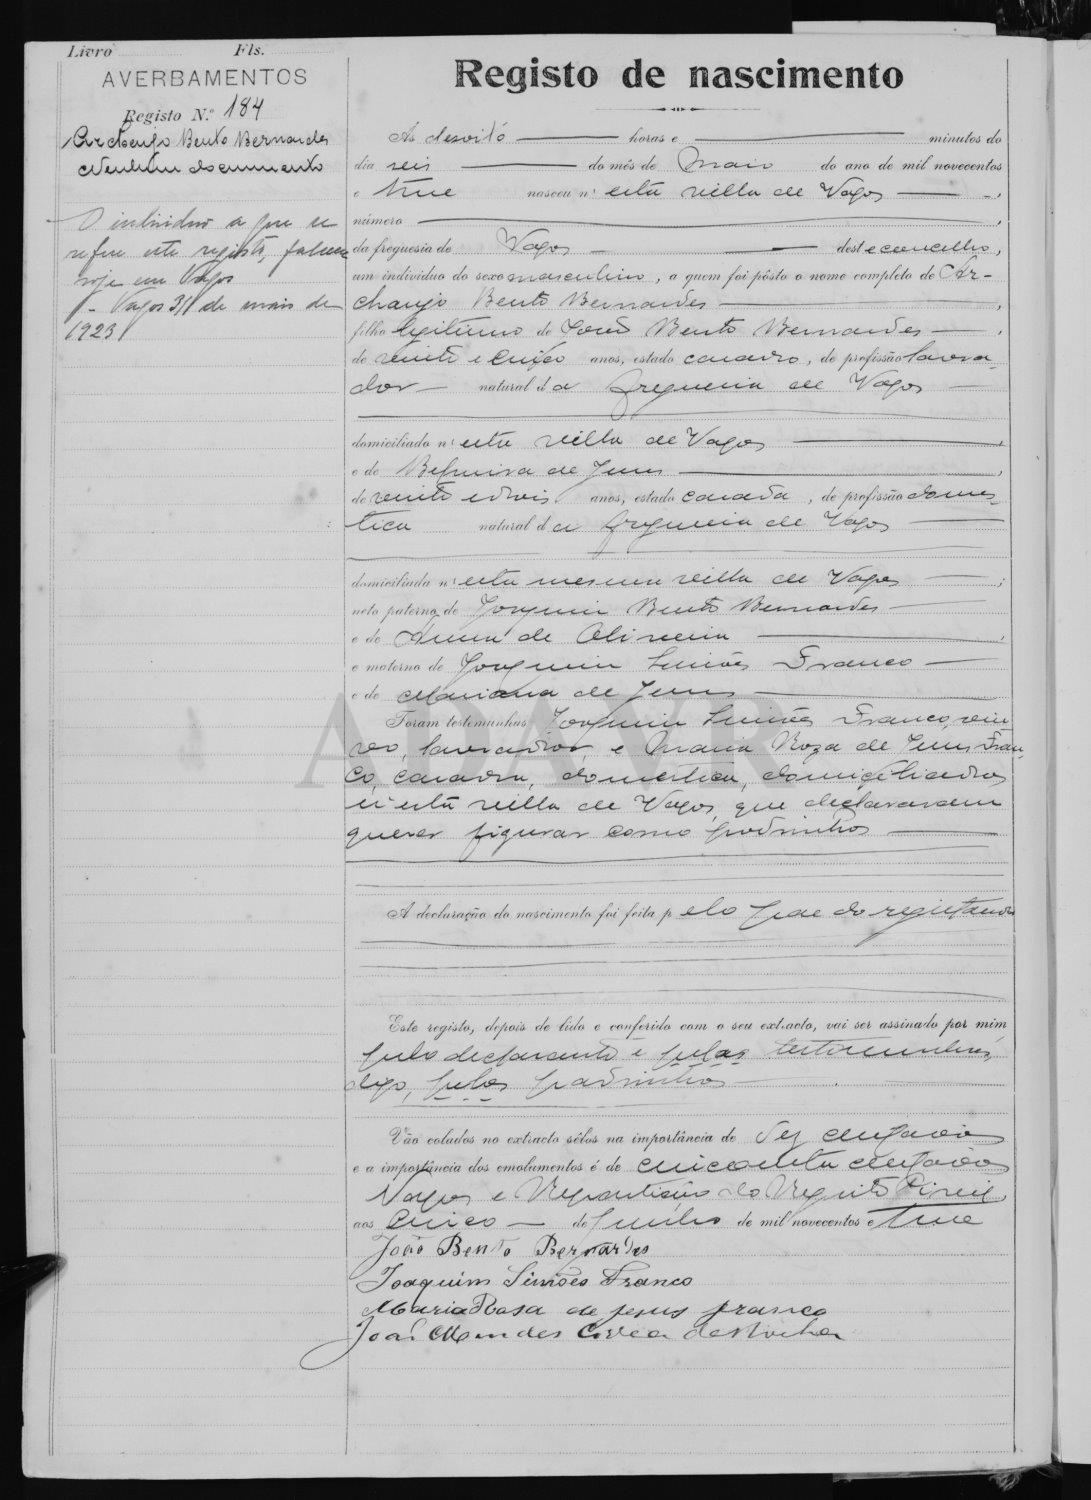 Livro Fls.
AVERBAMENTOS
Registo N.º 184
Archanjo Bento Bernardes
Nenhum documento
O individuo a que se
refere este registo, faleceu
hoje em Vagos
- Vagos 31 de maio de
1923
Registo de nascimento
Às desoito horas e minutos do
dia seis do mês de Maio do ano de mil novecentos
e treze nasceu n'esta villa de Vagos
número
da freguesia de Vagos deste concelho,
um indivíduo do sexo masculino, a quem foi pôsto o nome completo de Ar-
chanjo Bento Bernardes
filho legitimo de João Bento Bernardes
de vinte e cinco anos, estado casado, de profissão lavra-
dor natural da freguesia de Vagos
domiciliado n'esta villa de Vagos
e de de Jesus
de vinte e dois anos, estado casada, de profissão domes-
tica natural da freguesia de Vagos
domiciliada n'esta mesma villa de Vagos
neto paterno de Joaquim Bento Bernardes
e de Anna de Oliveira
e materno de Joaquim Simões Franco
e de Mariana de Jesus
Foram testemunhas Joaquim Simões Franco, viu-
vo, lavrador, e Maria Roza de Jesus Fran-
co, casada, domestica, domiciliados
n'esta villa de Vagos, que declararam
querer figurar como padrinhos
A declaração do nascimento foi feita pelo pae do registando
Este registo, depois de lido e conferido com o seu extracto, vai ser assinado por mim
pelo declarante e pelas testemunhas,
digo, pelos padrinhos
Vão colados no extracto sêlos na importância de dez centavos
e a importância dos emolumentos é de cincoenta centavos
Vagos e Repartição do Registo Civil,
aos cinco de Junho de mil novecentos e treze
João Bento Bernardes
Joaquim Simões Franco
Maria Rosa de Jesus Franco
João Mendes Correa da Rocha
ADAVR